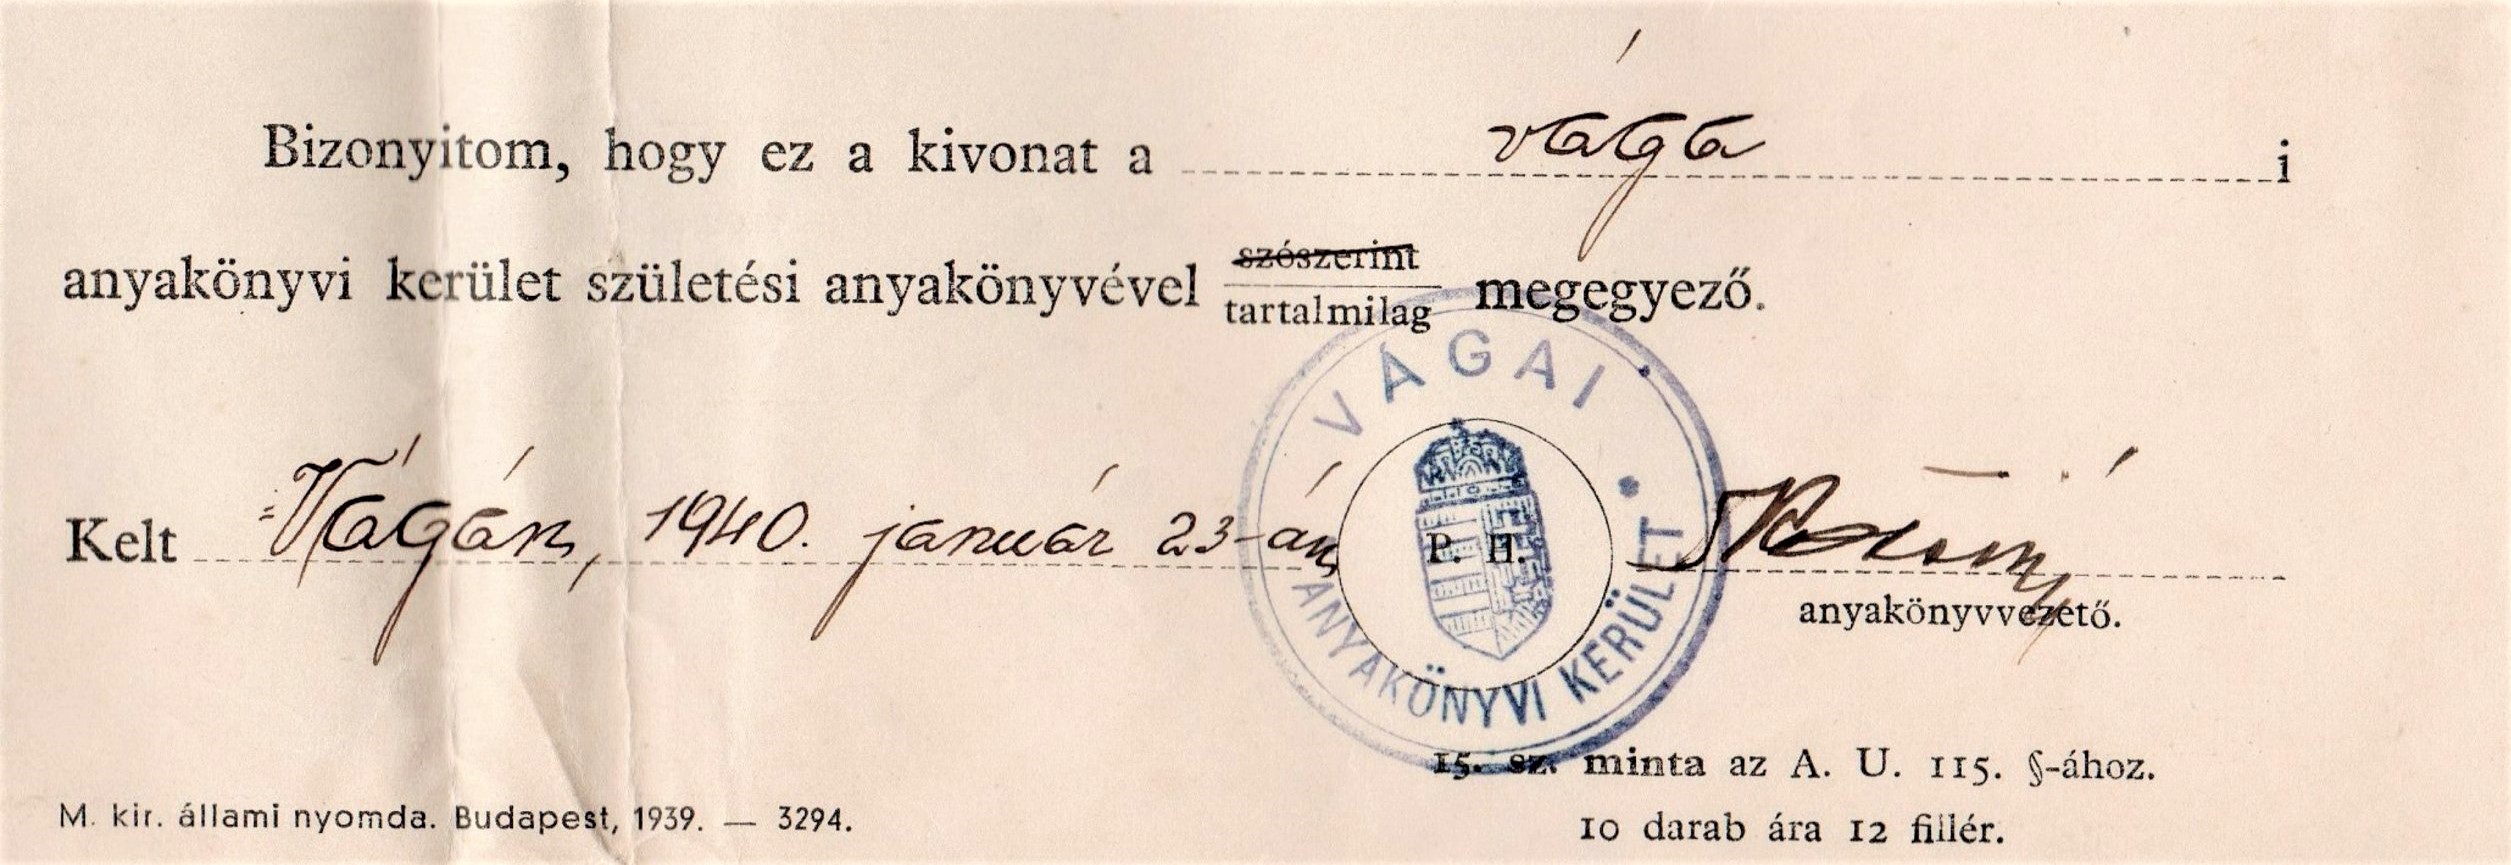 Bizonyitom, hogy ez a kivonat a vága i
anyakönyvi kerület születési anyakönyvével szószerint megegyező.
tartalmilag
VÁGAI
Kelt Vágán, 1940. január 23-án
P. H.
ANYAKÖNYVI KERÜLET
anyakönyvvezető.
15. sz. minta az A. U. 115. §-ához.
M. kir. állami nyomda. Budapest, 1939. — 3294.
10 darab ára 12 fillér.